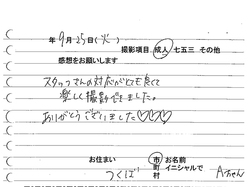 年 9月25日(火)
撮影項目 成人 七五三 その他
感想をお願いします
スタッフさんの対応がとても良くて
楽しく撮影できました。
ありがとうございました♡♡♡
お住まい 市 お名前
町 イニシャルで
つくば 村 Aちゃん